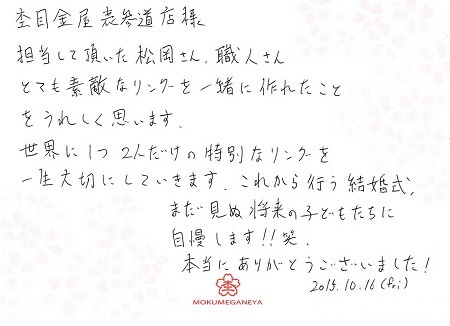 杢目金屋 表参道店様、
担当して頂いた松岡さん、職人さん
とても素敵なリングを一緒に作れたこと
をうれしく思います。
世界に1つ 2人だけの特別なリングを
一生大切にしていきます。これから行う結婚式、
まだ見ぬ将来の子どもたちに
自慢します!!笑。
本当にありがとうございました!
2015.10.16(fri)
MOKUMEGANEYA